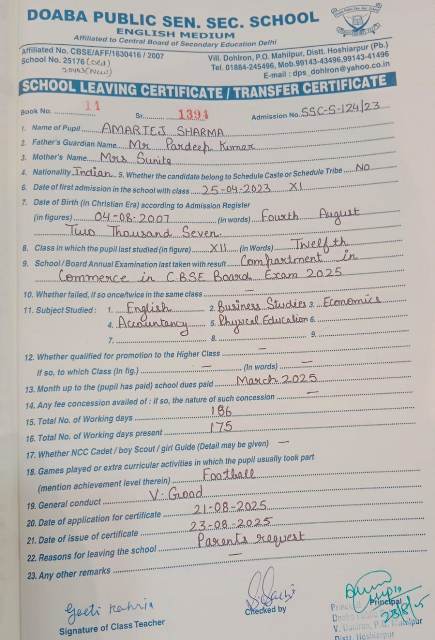 DOABA PUBLIC SEN. SEC. SCHOOL
ENGLISH MEDIUM
Affiliated to Central Board of Secondary Education Delhi
Affiliated No. CBSE/AFF/1630416 / 2007
School No. 25176 (Old)
Vill. Dohlron, P.O. Mahilpur, Distt. Hoshiarpur (Pb.)
Tel. 01884-245496, Mob.99143-43496,99143-41496
E-mail : dps_dohlron@yahoo.co.in
SCHOOL LEAVING CERTIFICATE / TRANSFER CERTIFICATE
Book No. 11 Sr. 1391 Admission No. SSC-S-124/23
1. Name of Pupil AMARTEJ SHARMA
2. Father's Guardian Name Mr Pardeep Kumar
3. Mother's Name Mrs Sunita
4. Nationality Indian 5. Whether the candidate belong to Schedule Caste or Schedule Tribe NO
6. Date of first admission in the school with class 25-04-2023 XI
7. Date of Birth (in Christian Era) according to Admission Register
(in figures) 04-08-2007 (in words) Fourth August
Two Thousand Seven
8. Class in which the pupil last studied (in figure) XII (in Words) Twelfth
9. School / Board Annual Examination last taken with result Compartment in
Commerce in CBSE Board Exam 2025
10. Whether failed, if so once/twice in the same class —
11. Subject Studied : 1. English 2. Business Studies 3. Economics
4. Accountancy 5. Physical Education 6.
7. 8. 9.
12. Whether qualified for promotion to the Higher Class —
If so, to which Class (In fig.) — (In words) —
13. Month up to the (pupil has paid) school dues paid March 2025
14. Any fee concession availed of : if so, the nature of such concession —
15. Total No. of Working days 186
16. Total No. of Working days present 175
17. Whether NCC Cadet / boy Scout / girl Guide (Detail may be given) —
18. Games played or extra curricular activities in which the pupil usually took part
(mention achievement level therein) Football
19. General conduct V. Good
20. Date of application for certificate 21-08-2025
21. Date of issue of certificate 23-08-2025
22. Reasons for leaving the school Parents request
23. Any other remarks —
Signature of Class Teacher
Checked by
Principal